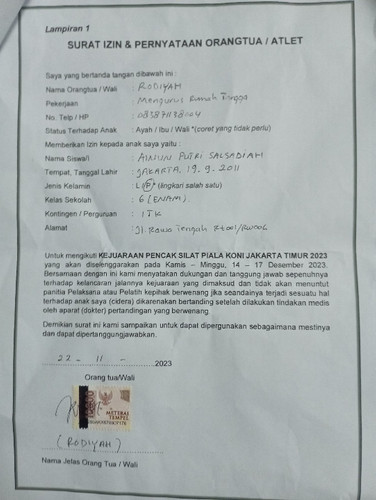 Lampiran 1
SURAT IZIN & PERNYATAAN ORANGTUA / ATLET
Saya yang bertanda tangan dibawah ini :
Nama Orangtua / Wali : RODIYAH
Pekerjaan : Mengurus Rumah Tangga
No. Telp / HP :
Status Terhadap Anak : Ayah / Ibu / Wali *(coret yang tidak perlu)
Memberikan Izin kepada anak saya yaitu :
Nama Siswa/i : AINUN PUTRI SALSADIAH
Tempat, Tanggal Lahir : JAKARTA, 19. 9. 2011
Jenis Kelamin : L / P * (lingkari salah satu)
Kelas Sekolah : 6 (ENAM)
Kontingen / Perguruan : ITK
Alamat : Jl. Rawa Tengah
Untuk mengikuti KEJUARAAN PENCAK SILAT PIALA KONI JAKARTA TIMUR 2023
yang akan diselenggarakan pada Kamis – Minggu, 14 – 17 Desember 2023.
Bersamaan dengan ini kami menyatakan dukungan dan tanggung jawab sepenuhnya
terhadap kelancaran jalannya kejuaraan yang dimaksud dan tidak akan menuntut
panitia Pelaksana atau Pelatih kepihak berwenang jika seandainya terjadi sesuatu hal
terhadap anak saya (cidera) dikarenakan bertanding setelah dilakukan tindakan medis
oleh aparat (dokter) pertandingan yang berwenang.
Demikian surat ini kami sampaikan untuk dapat dipergunakan sebagaimana mestinya
dan dapat dipertanggungjawabkan.
22 - 11 - 2023
Orang tua/Wali
METERAI
TEMPEL
(RODIYAH)
Nama Jelas Orang Tua / Wali